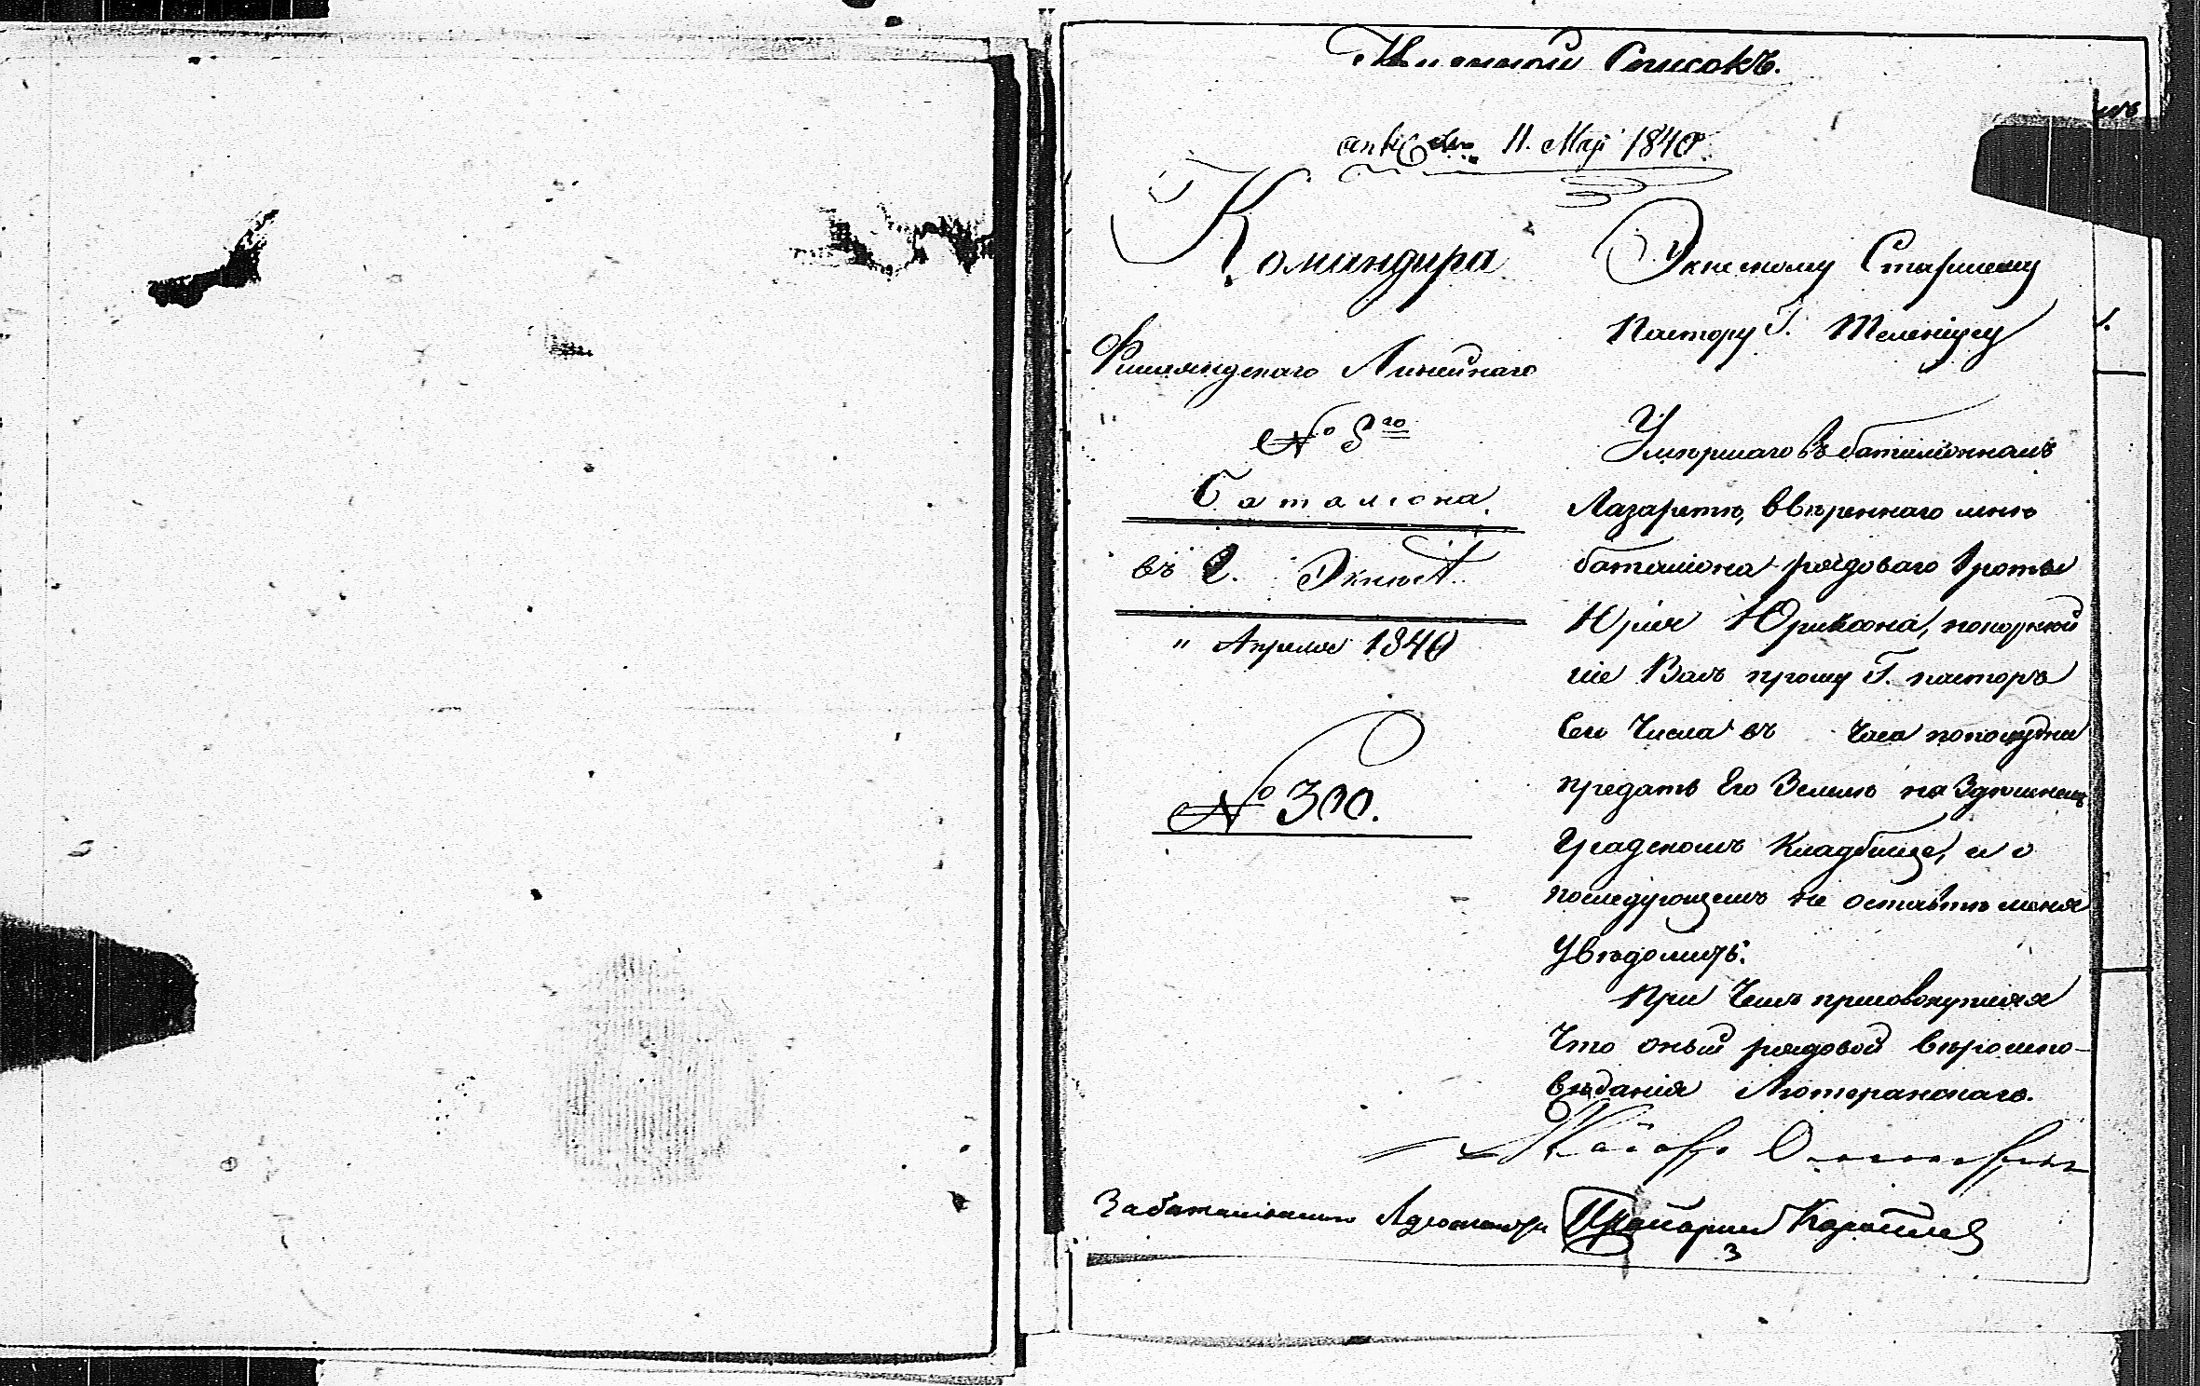 Именной Списокъ.
ank. den 11. Maj 1840.
Командира
Финляндскаго Линейнаго
№ 8го
Баталіона.
въ Г. Экнесѣ.
" Апреля 1840
№ 300.
Экнескому Старшему
Пастору Г.
Умершаго въ баталіонномъ
Лазаретѣ, ввѣреннаго мнѣ
баталіона рядоваго 1 роты
Юрія покорнѣй
ше Васъ прошу Г. пасторъ
сего Числа въ часа пополудни
предать Его Землѣ на Здѣшнемъ
Градскомъ Кладбище, и о
последующемъ не оставить меня
увѣдомить.
При чемъ присовокупляя
Что оный рядовой вѣроиспо-
вѣданія Лютеранскаго.
Маіоръ
За баталіоннаго Адъютанта Прапорщикъ
3
1.